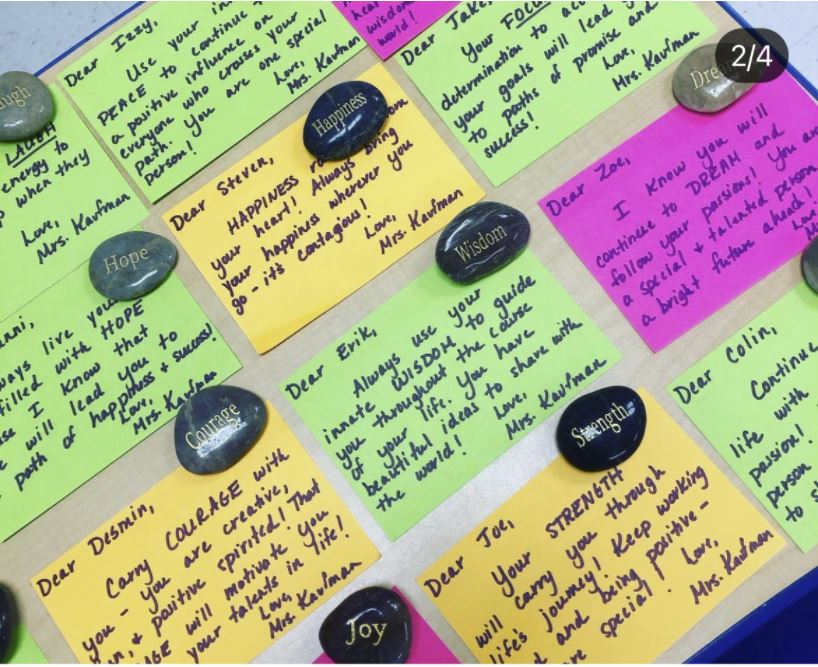 2/4
Dear Izzy,
Use your
PEACE to continue
a positive influence on
everyone who crosses your
path. You are one special
person!
Love,
Mrs. Kaufman
wisdom
world!
Dear Jake,
Your FOCUS
determination to
your goals will lead
to paths of promise and
success!
Love,
Mrs. Kaufman
LAUGH
energy to
when they
Love,
Mrs. Kaufman
Happiness
Dear Steven,
HAPPINESS
your heart! Always bring
your happiness wherever you
go - it's contagious!
Love,
Mrs. Kaufman
Dear Zoe,
I know you will
continue to DREAM and
follow your passions! You are
a special + talented person
a bright future ahead!
Hope
live
filled with HOPE
I know that
will lead you to
path of happiness + success!
Love,
Mrs. Kaufman
Wisdom
Dear Erik,
Always use your
innate WISDOM to guide
you throughout the course
of your life. You have
beautiful ideas to share with
the world!
Love,
Mrs. Kaufman
Dear Colin,
Continue
life with
passion!
person
to
Courage
Dear Desmin,
Carry COURAGE with
you - you are creative,
+ positive spirited! That
will motivate you
your talents in life!
Love,
Mrs. Kaufman
Strength
Dear Joe,
Your STRENGTH
will carry you through
life's journey! Keep working
and being positive -
special!
Love,
Mrs. Kaufman
Joy